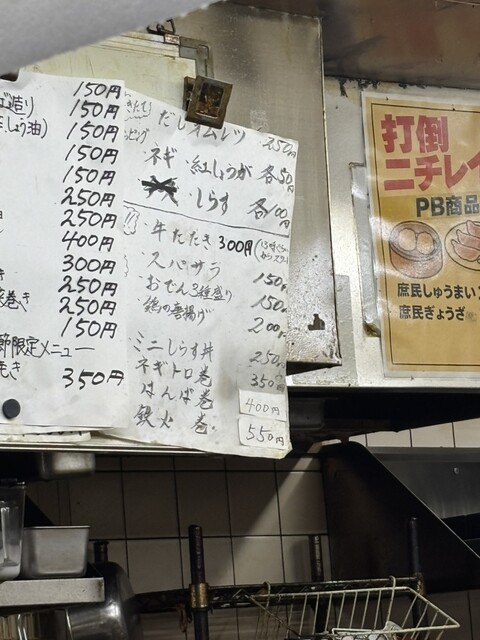 150円
造り 150円
しょう油) 150円
150円
150円
250円
250円
400円
き 300円
巻き 250円
250円
150円
節限定メニュー
もき 350円
だしオムレツ 250円
ネギ 紅しょうが 各50円
しらす 各100円
牛たたき 300円
スパサラ 150円
おでん3種盛り 150円
鶏の唐揚げ 200円
ミニしらす丼 250円
ネギトロ巻 350円
ねぎま巻 400円
鉄火巻 550円
打倒
ニチレイ
PB商品
庶民しゅうまい
庶民ぎょうざ